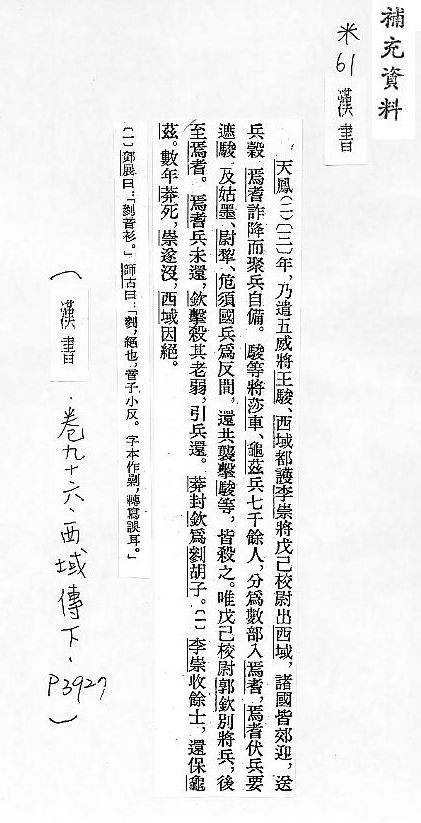 補充資料
米61 漢書
天鳳(二)〔三〕年,乃遣五威將王駿、西域都護李崇將戊己校尉出西域,諸國皆郊迎,送
兵穀。焉耆詐降而聚兵自備。駿等將莎車、龜茲兵七千餘人,分爲數部入焉耆,焉耆伏兵要
遮駿。及姑墨、尉犂、危須國兵爲反間,還共襲擊駿等,皆殺之。唯戊己校尉郭欽別將兵,後
至焉耆。焉耆兵未還,欽擊殺其老弱,引兵還。莽封欽爲剼胡子。〔一〕李崇收餘士,還保龜
茲。數年莽死,崇遂沒,西域因絕。
〔一〕鄧展曰:「剼音衫。」師古曰:「剼,絕也,音子小反。字本作剿,轉寫誤耳。」
(漢書.卷九十六.西域傳下.P3927)